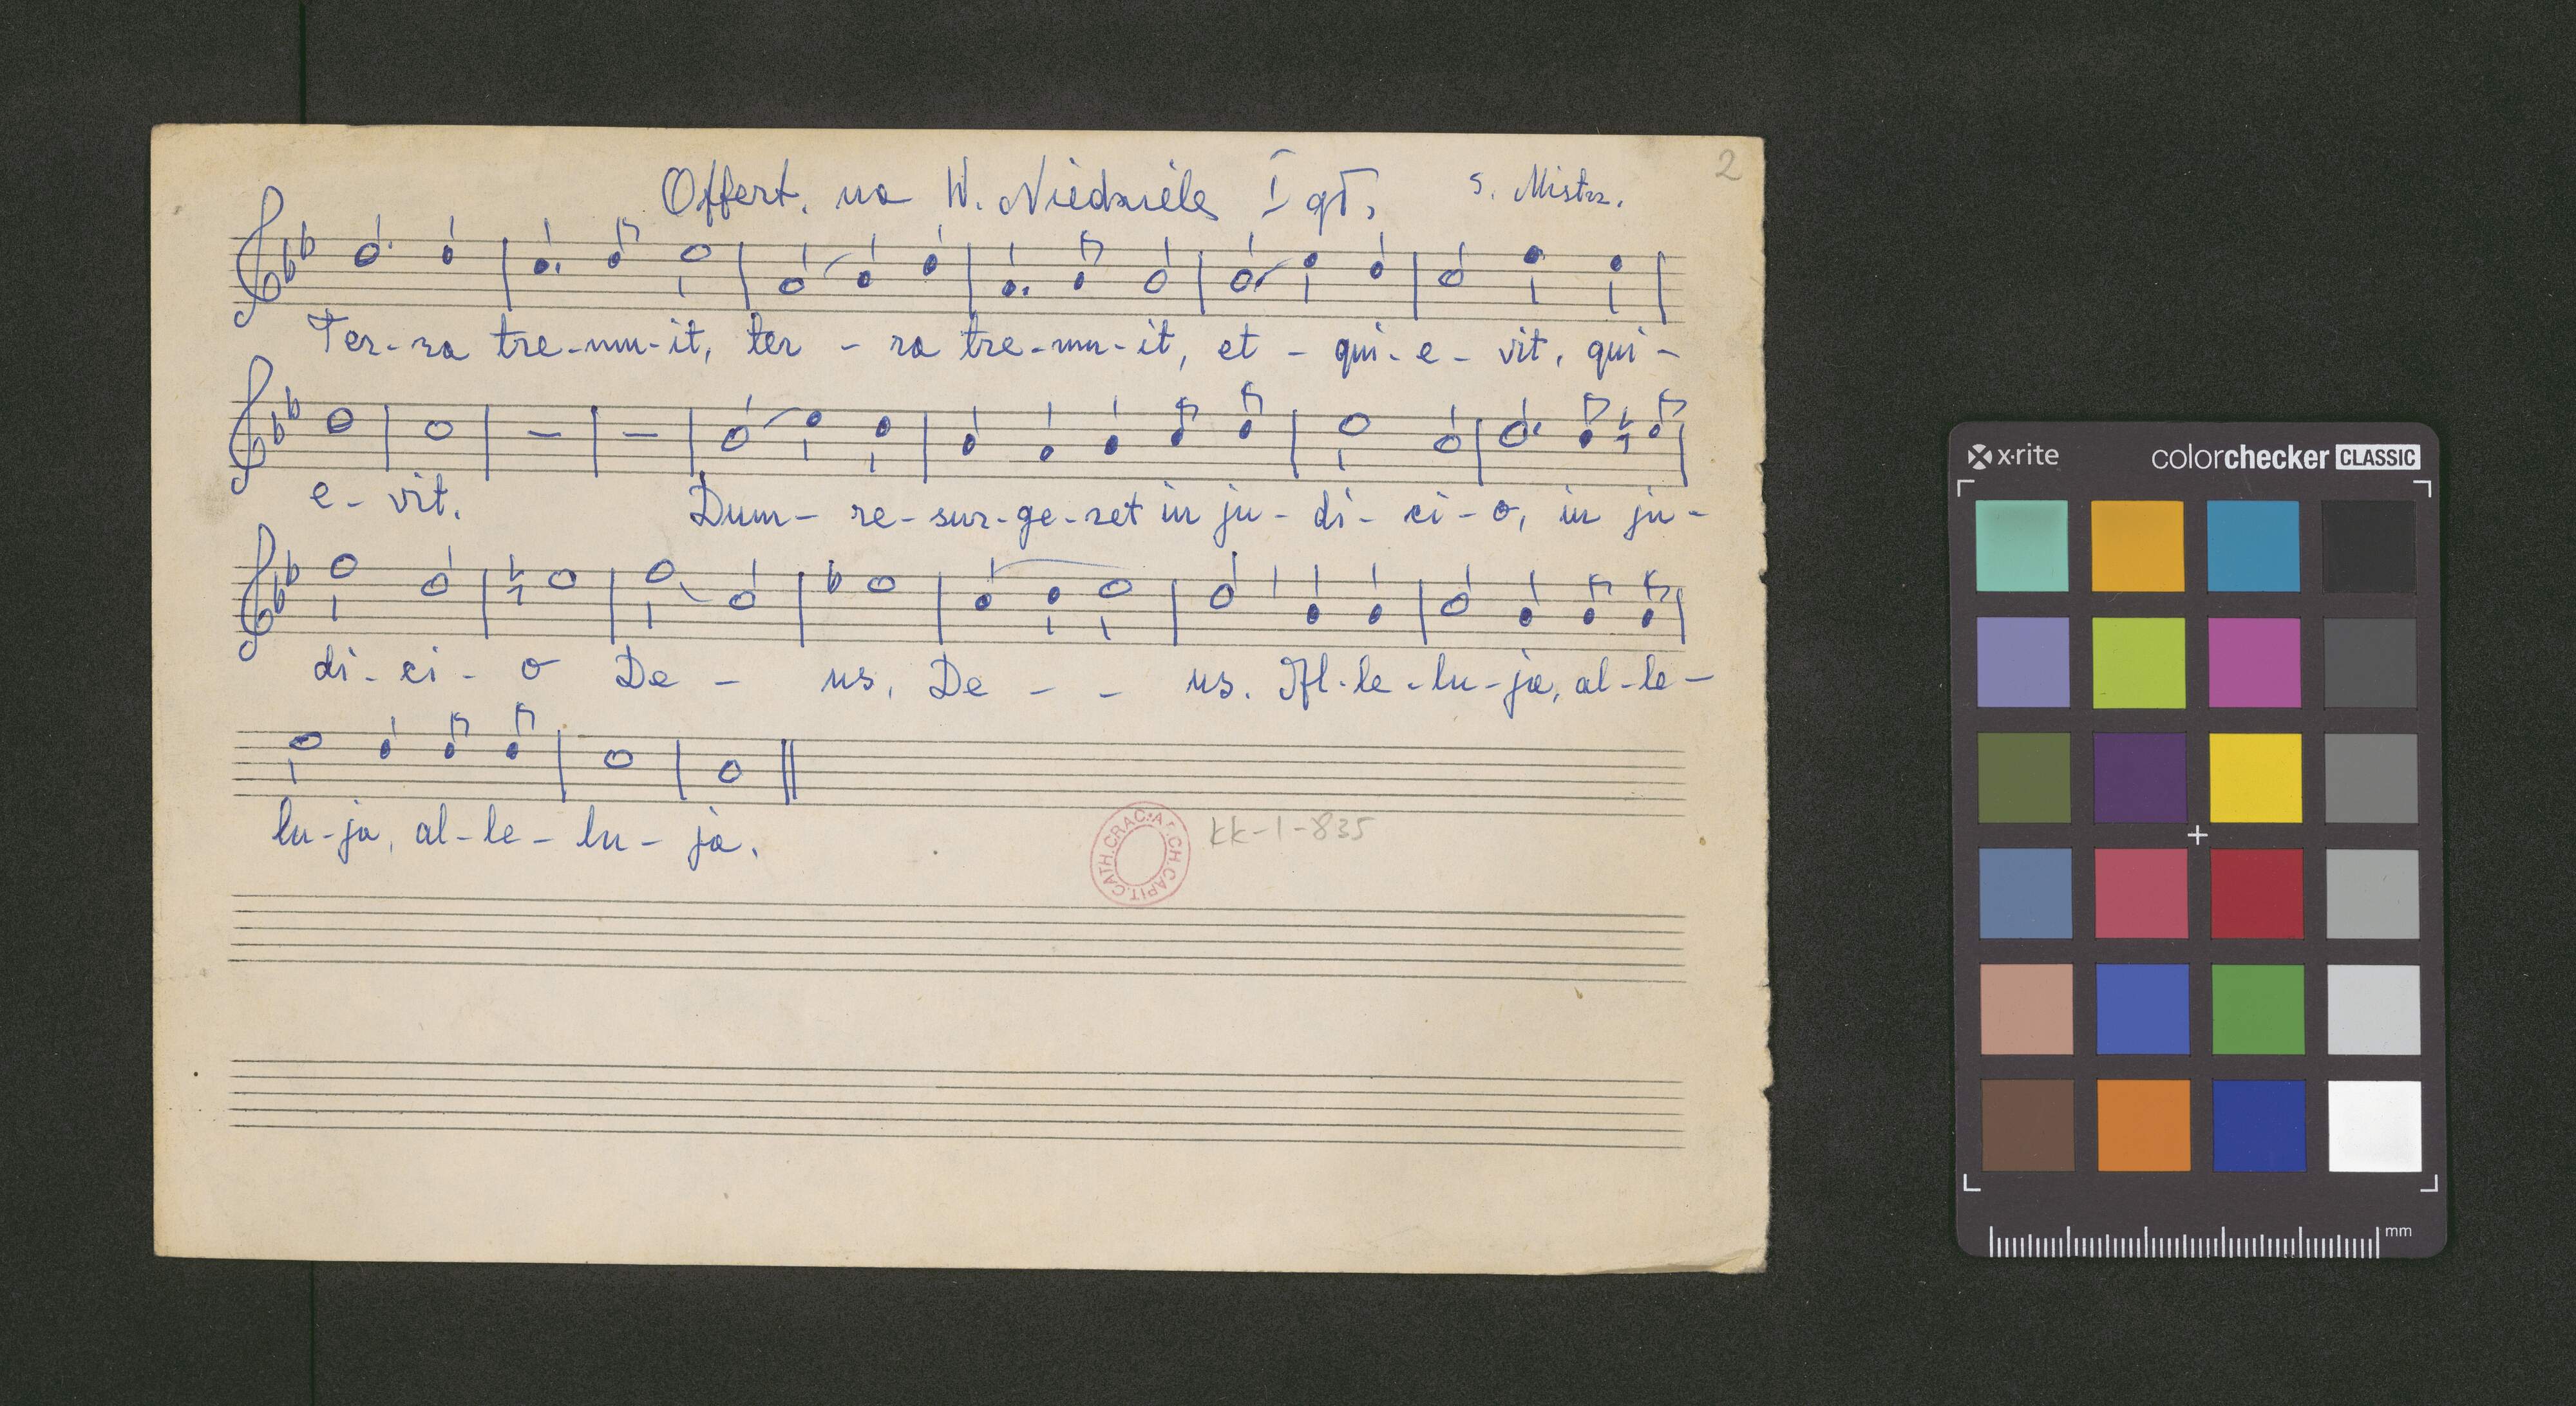 2
Offert. na W. Niedzielę I gł. s. Mistrz.
Ter-ra tre-mu-it, ter - ra tre-mu-it, et - qui-e - vit, qui-
e - vit. Dum - re-sur-ge-ret in ju-di-ci-o, in ju-
di-ci-o De - us, De - - us. Al-le-lu-ja, al-le-
lu-ja, al-le-lu-ja.
CATH.CRAC. ARCH.CAPIT.
KK-1-835
x·rite
colorchecker CLASSIC
mm